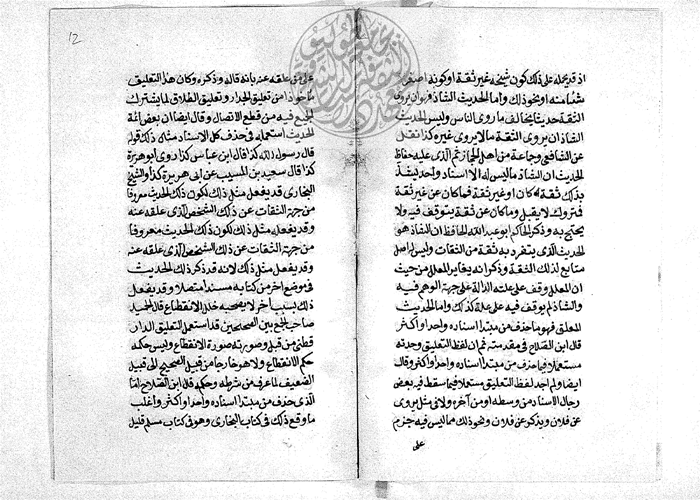 اذ قد يحمله على ذلك كون شيخه غير ثقة او كونه اصغر
سنا منه او نحو ذلك واما الحديث الشاذ فهو ان يروى
الثقة حديثا يخالف ما روى الناس وليس الحديث
الشاذ ان يروى الثقة مالا يروى غيره كذا نقل
عن الشافعى وجماعة من اهل الحجاز ثم الذى عليه حفاظ
الحديث ان الشاذ ما ليس له الا اسناد واحد يشذ
بذلك ثقة كان او غير ثقة فما كان عن غير ثقة
فمتروك لا يقبل وما كان عن ثقة يتوقف فيه ولا
يحتج به وذكر الحاكم ابو عبد الله الحافظ ان الشاذ هو
الحديث الذى يتفرد به ثقة من الثقات وليس له اصل
متابع لذلك الثقة وذكر انه يغاير المعلل من حيث
ان المعلل وقف على علته الدالة على جهة الوهم فيه
والشاذ لم يوقف فيه على علة كذلك واما الحديث
المعلق فهو ما حذف من مبتدا اسناده واحد او اكثر
قال ابن الصلاح فى مقدمته ثم ان لفظ التعليق وجدته
مستعملا فيما حذف من مبتدا اسناده واحد او اكثر وقال
ايضا ولم اجد لفظ التعليق مستعملا فيما سقط فيه بعض
رجال الاسناد من وسطه او من آخره ولا فى مثل يروى
عن فلان ويذكر عن فلان ونحو ذلك مما ليس فيه جزم
على
12
على من علقه عنه بانه قاله وذكره وكان هذا التعليق
ماخوذا من تعليق الجدار وتعليق الطلاق لما يشترك
الجميع فيه من قطع الاتصال وقال ايضا ان بعض ائمة
الحديث استعمله فى حذف كل الاسناد مثل ذلك قوله
قال رسول الله كذا قال ابن عباس كذا روى ابو هريرة
كذا قال سعيد بن المسيب عن ابى هريرة كذا والشيخ
البخارى قد يفعل مثل ذلك لكون ذلك الحديث معروفا
من جهة الثقات عن ذلك الشخص الذى علقه عنه
وقد يفعله مثل ذلك كون ذلك الحديث معروفا
من جهة الثقات عن ذلك الشخص الذى علقه عنه
وقد يفعل مثل ذلك لانه قد ذكر ذلك الحديث
فى موضع اخر من كتابه مسندا متصلا وقد يفعل
ذلك بسبب آخر لا يصحبه خلل الانقطاع قال الحميدى
صاحب الجمع بين الصحيحين قد استعمل التعليق الدار
قطنى من قبل وصورته صورة الانقطاع وليس حكمه
حكم الانقطاع ولا هو خارجا من قبيل الصحيح الى قبيل
الضعيف لما عرف من شرطه وحكمه قال ابن الصلاح اما
الذى حذف من مبتدا اسناده واحد او اكثر واغلب
ما وقع ذلك فى كتاب البخارى وهو فى كتاب مسلم قليل